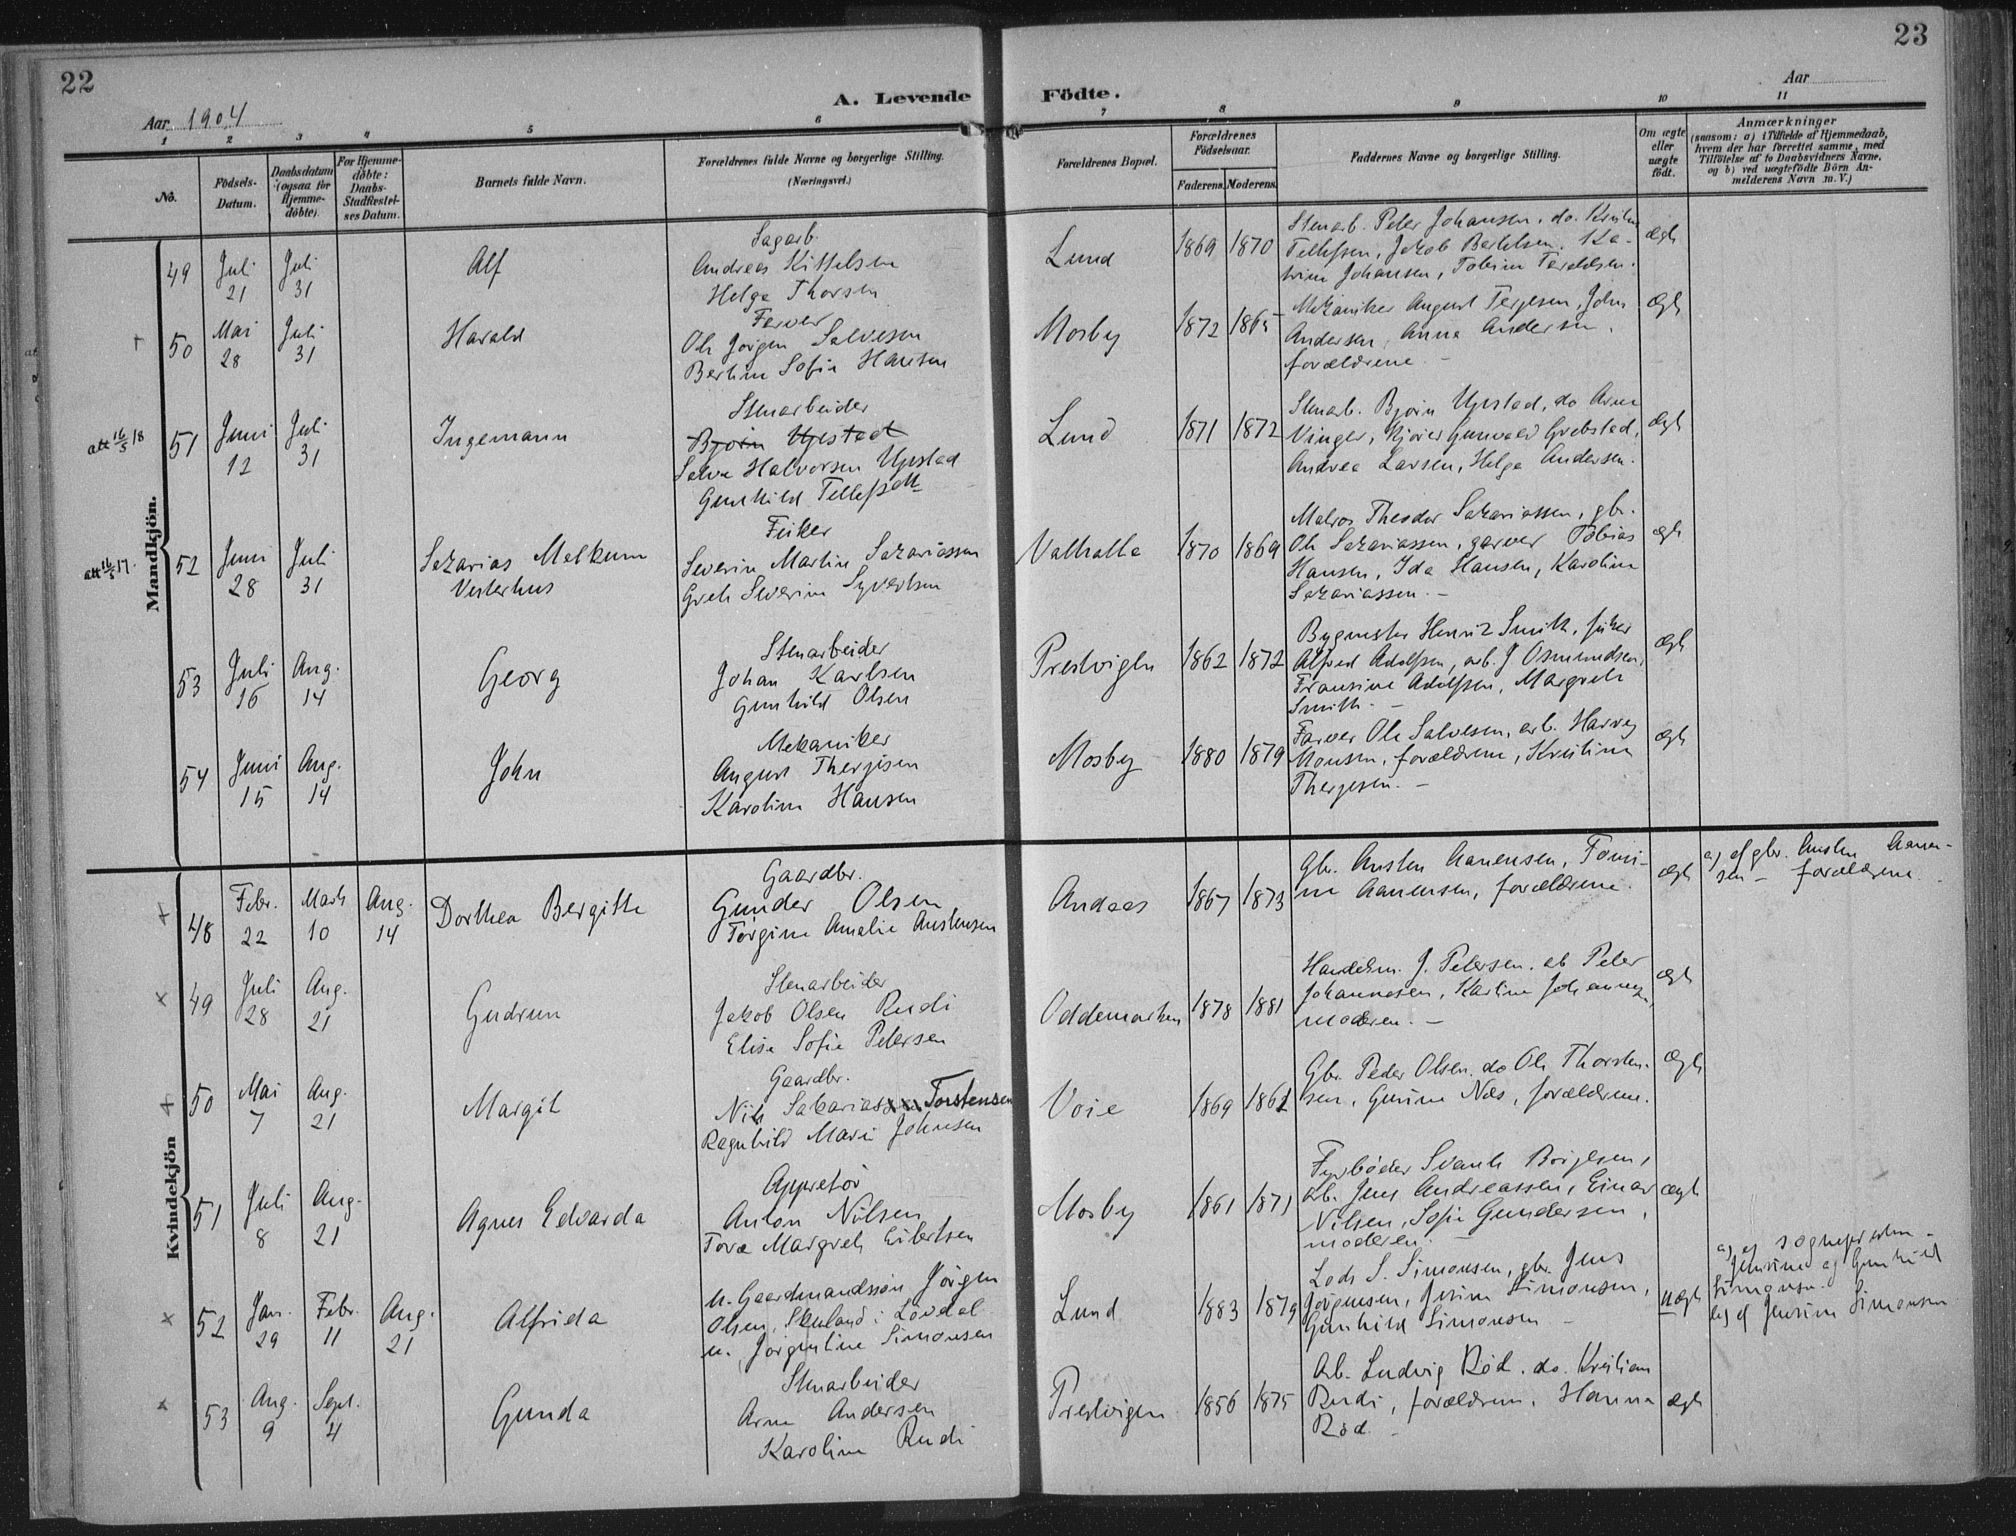 22
23
Aar 1904
A. Levende Födte.
Aar
1 2 3 4 5 6 7 8 9 10 11
No.
Födsels-Datum.
Daabsdatum (ogsaa for Hjemme-döbte).
For Hjemme-döbte: Daabs-Stadfæstel-ses Datum.
Barnets fulde Navn.
Forældrenes fulde Navne og borgerlige Stilling. (Næringsvei.)
Forældrenes Bopæl.
Forældrenes Födselsaar.
Faderens. Moderens.
Faddernes Navne og borgerlige Stilling.
Om ægte eller uægte födt.
Anmærkninger
(saasom: a) i Tilfælde af Hjemmedaab,
hvem der har forrettet samme, med
Tilföielse af to Daabsvidners Navne,
og b) ved uægtefödte Börn An-
melderens Navn m. V.)
Mandkjön.
49
Juli 21
Juli 31
Alf
Sagarb.
Andreas Kittelsen
Helga Thorsen
Lund
1869 1870
Stenarb. Peter Johansen, do.
Tellefsen, Jakob Bertelsen, Ka-
trine Johansen,
ægte
50
Mai 28
Juli 31
Harald
Farver
Ole Jörgen Salvesen
Bertine Sofie Hansen
Mosby
1872 1865
Mekaniker August Terjesen, John
Andersen, Anna Andersen,
forældrene –
Ægte
att 16/5 18
51
Juni 12
Juli 31
Ingemann
Stenarbeider
Björn Upstad
Salve Halvorsen Upstad
Gunhild Tellefsen
Lund
1871 1872
Stenarb. Björn Upstad, do Arne
Vinger, Kjörer Gunvald Grebstad,
Andrea Larsen, Helga Andersen.
Ægte
att 16/5 17.
52
Juni 28
Juli 31
Sakarias Melkum
Vesterhus
Fisker
Severin Martin Sakariassen
Grete Severine Syvertsen
Valhalla
1870 1869
Matros Theodor Sakariassen, gbr.
Ole Sakariassen, garver Tobias
Hansen, Ida Hansen, Karoline
Sakariassen. –
ægte
53
Juli 16
Aug. 14
Georg
Stenarbeider
Johan Karlsen
Gunhild Olsen
Prestvigen
1862 1872
Bygmester Henrik Smith, fisker
Alfred Adolfsen, arb. J Osmundsen,
Fransine Adolfsen, Margrete
Smith. –
Ægte
54
Juni 15
Aug. 14
John
Mekaniker
August Therjesen
Karoline Hansen
Mosby
1880 1879
Farver Ole Salvesen, arb. Harvey
Monsen, forældrene, Kristine
Therjesen. –
Ægte
Kvindekjön
48
Febr. 22
Marts 10
Aug. 14
Dorthea Bergitte
Gaardbr.
Gunder Olsen
Torgine Amalie Austensen
Andaas
1867 1873
Gbr. Austen Aanensen, Tomi-
ne Aanensen, forældrene.
ægte
a) af gbr. Austen Aanen-
sen – forældrene.
49
Juli 28
Aug. 21
Gudrun
Stenarbeider
Jakob Olsen Rudi
Elise Sofie Petersen
Oddemarken
1878 1881
Handelsm. J. Petersen. arb Peter
Johannesen, Karline Johannesen,
moderen. –
Ægte
50
Mai 7
Aug. 21
Margit
Gaardbr.
Nils Sakarias Torstensen
Ragnhild Marie Johnsen
Voie
1869 1862
Gbr. Peder Olsen, do Ole Thorsten-
sen, Gurine Næs, forældrene.
Ægte
51
Juli 8
Aug. 21
Agnes Edvarda
Appretör
Anton Nilsen
Tora Margrete Eilertsen
Mosby
1861 1871
Fyrböder Svante Börjesen,
arb. Jens Andreassen, Einar
Nilsen, Sofie Gundersen,
moderen. –
ægte
52
Jan. 29
Febr. 11
Aug. 21
Alfrida
u. Gaardmandssön Jörgen
Olsen, i Lövdal
u. Jörgentine Simonsen
Lund
1883 1879
Lods S. Simonsen, gbr. Jens
Jörgensen, Jensine Simonsen,
Gunhild Simonsen –
uægte
a) af sognepresten –
Jensine og Gunhild
Simonsen.
b) af Jensine Simonsen
53
Aug. 9
Sept. 4
Gunda
Stenarbeider
Arne Andersen
Karoline Rudi
Prestvigen
1856 1875
Arb. Ludvig Röd. do. Kristian
Rudi, forældrene, Hanna
Röd. –
ægte